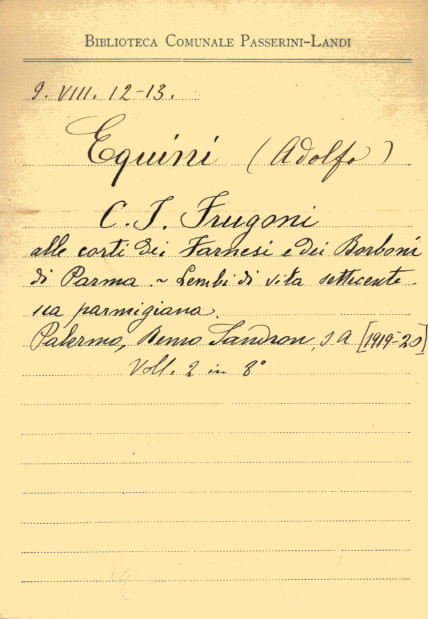 BIBLIOTECA COMUNALE PASSERINI-LANDI
9. VIII. 12-13.
Equini (Adolfo)
C. I. Frugoni
alle corti dei Farnesi e dei Borboni
di Parma. ~ Lembi di vita settecente-
sca parmigiana.
Palermo, Remo Sandron, s. a [1919-20]
Voll. 2 in 8°